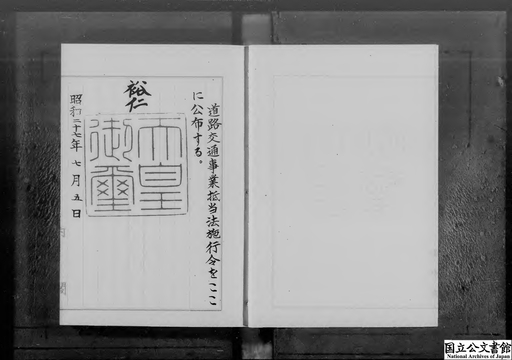 道路交通事業抵当法施行令をここ
に公布する。
裕仁
天皇
御璽
昭和二十七年七月五日
国立公文書館
National Archives of Japan